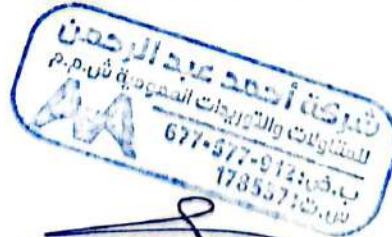 شركة أحمد عبد الرحمن
للمقاولات والتوريدات العمومية ش.م.م
AA
ب.ض: 677-577-912
س.ت: 178557